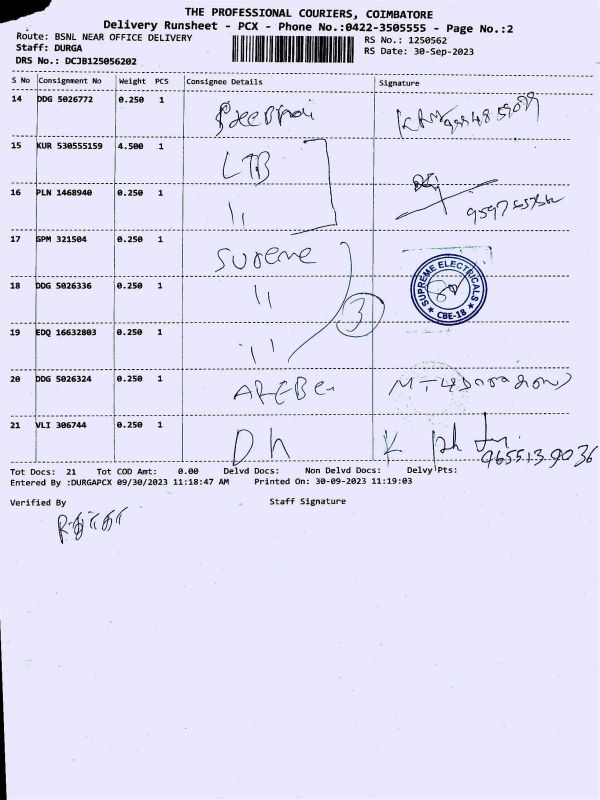 THE PROFESSIONAL COURIERS, COIMBATORE
Delivery Runsheet - PCX - Phone No.:0422-3505555 - Page No.:2
Route: BSNL NEAR OFFICE DELIVERY
RS No.: 1250562
Staff: DURGA
RS Date: 30-Sep-2023
DRS No.: DCJB125056202
S No Consignment No Weight PCS Consignee Details Signature
14 DDG 5026772 0.250 1
15 KUR 530555159 4.500 1 LTB
16 PLN 1468940 0.250 1 "
17 GPM 321504 0.250 1 Supreme
18 DDG 5026336 0.250 1 " 3 SUPREME ELECTRICALS CBE-18
19 EDQ 16632803 0.250 1 "
20 DDG 5026324 0.250 1
21 VLI 306744 0.250 1 Dh
9655139036
Tot Docs: 21 Tot COD Amt: 0.00 Delvd Docs: Non Delvd Docs: Delvy Pts:
Entered By :DURGAPCX 09/30/2023 11:18:47 AM Printed On: 30-09-2023 11:19:03
Verified By Staff Signature